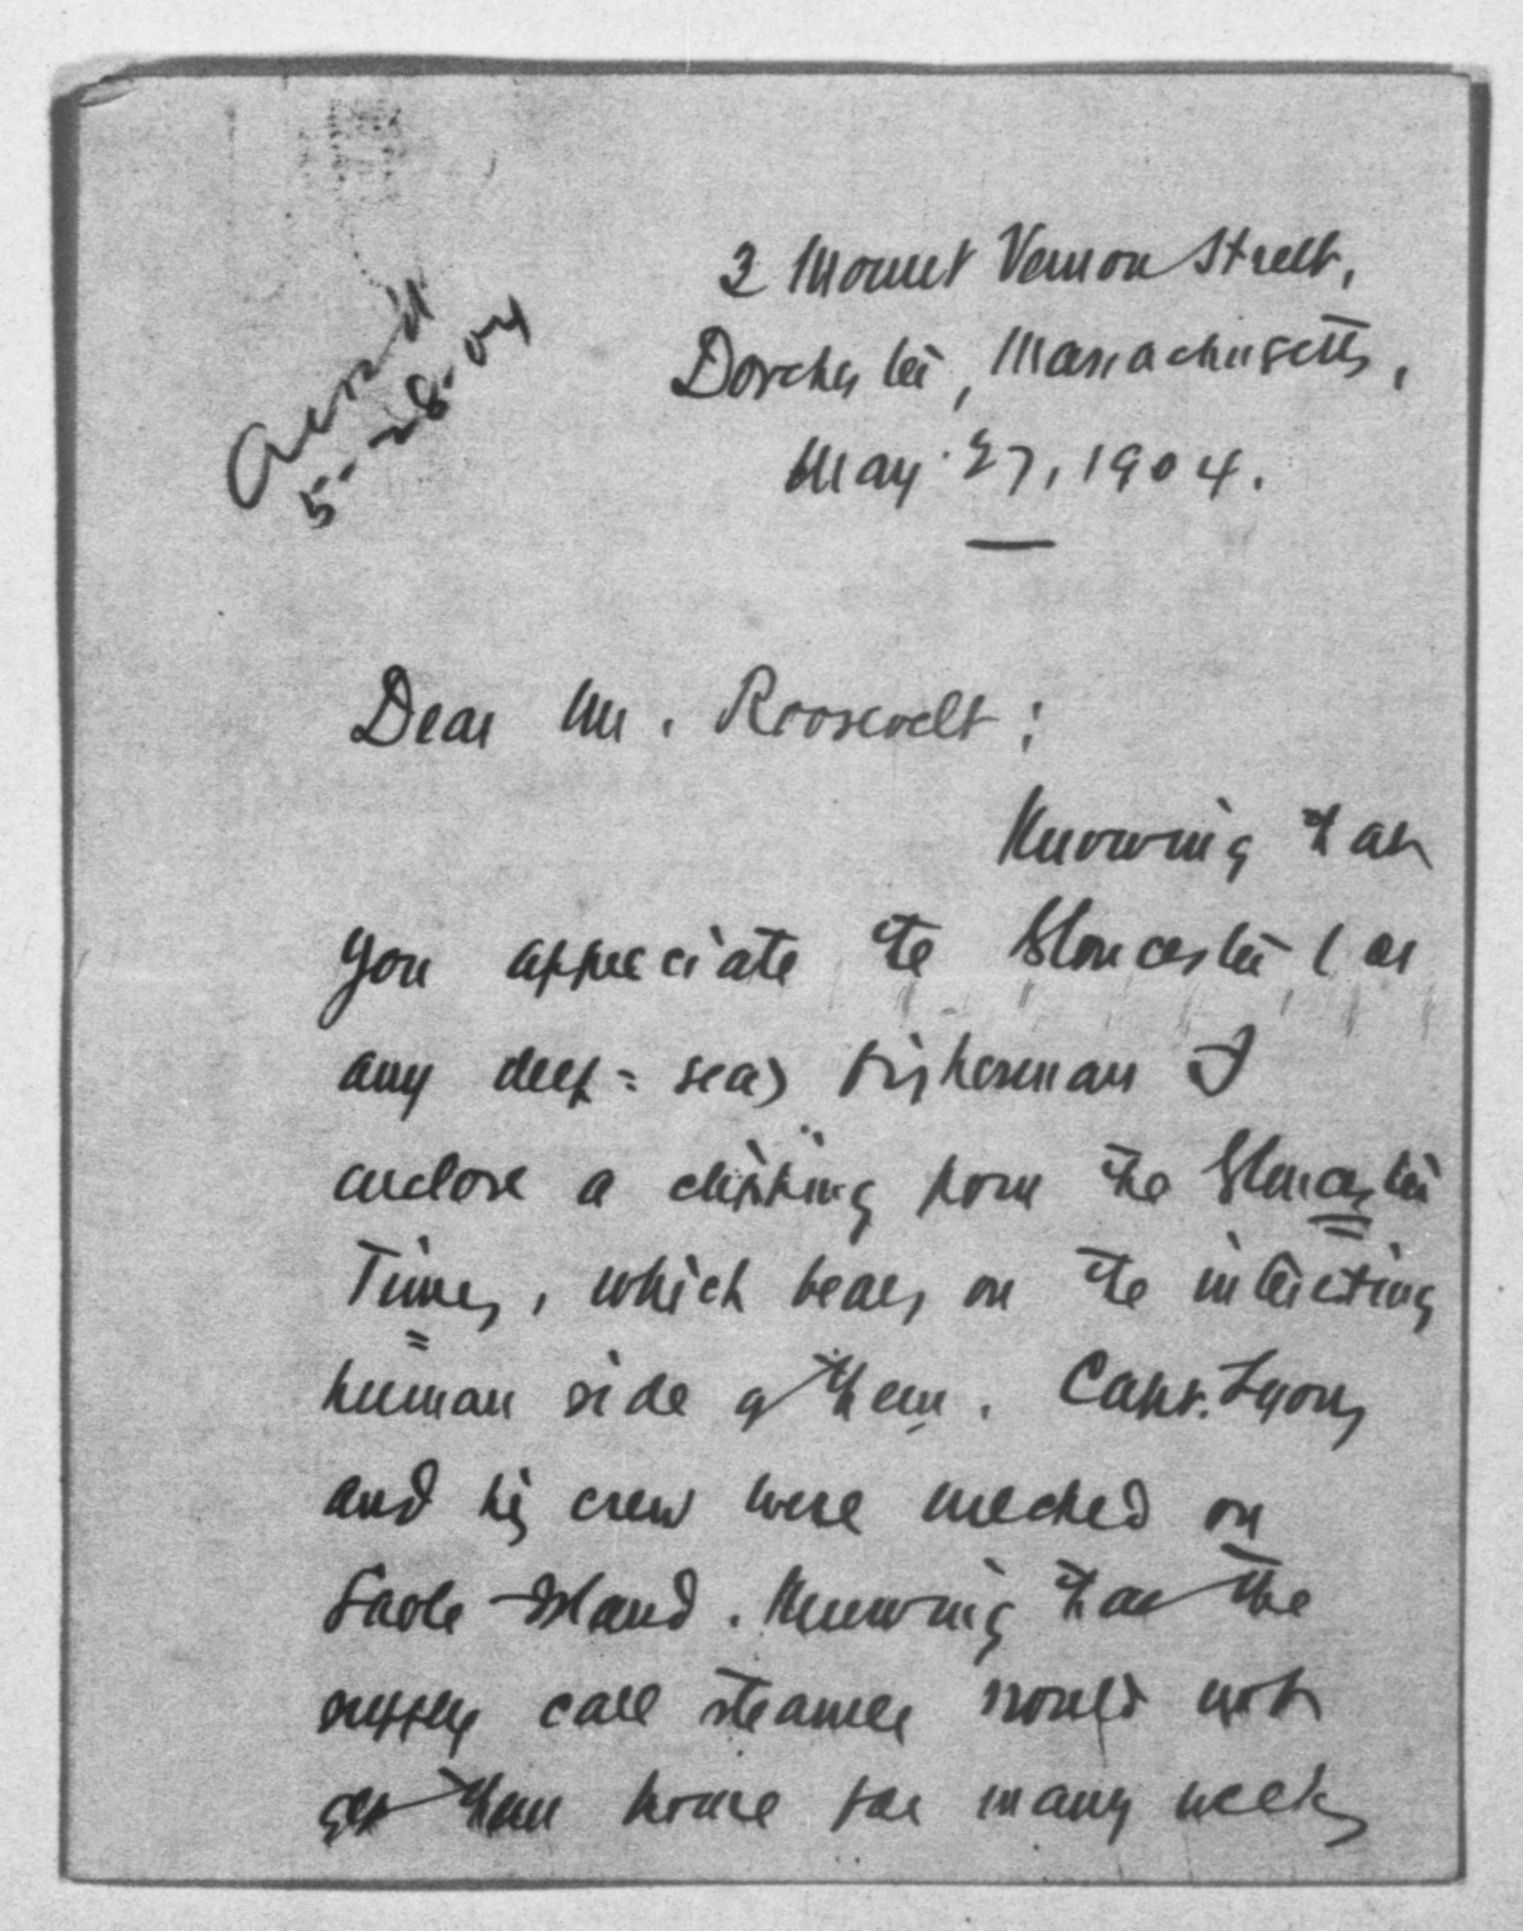 Ack'd
5-28-04
3 Mount Vernon Street,
Dorchester, Massachusetts,
May 27, 1904.
Dear Mr. Roosevelt:
Knowing that
you appreciate the Gloucester (or
any deep-sea) fisherman I
enclose a clipping from the Gloucester
Times, which bears on the interesting
human side of them. Capt. Lyons
and his crew were wrecked on
Sable Island. Knowing that the
supply call steamer would not
get them home for many weeks